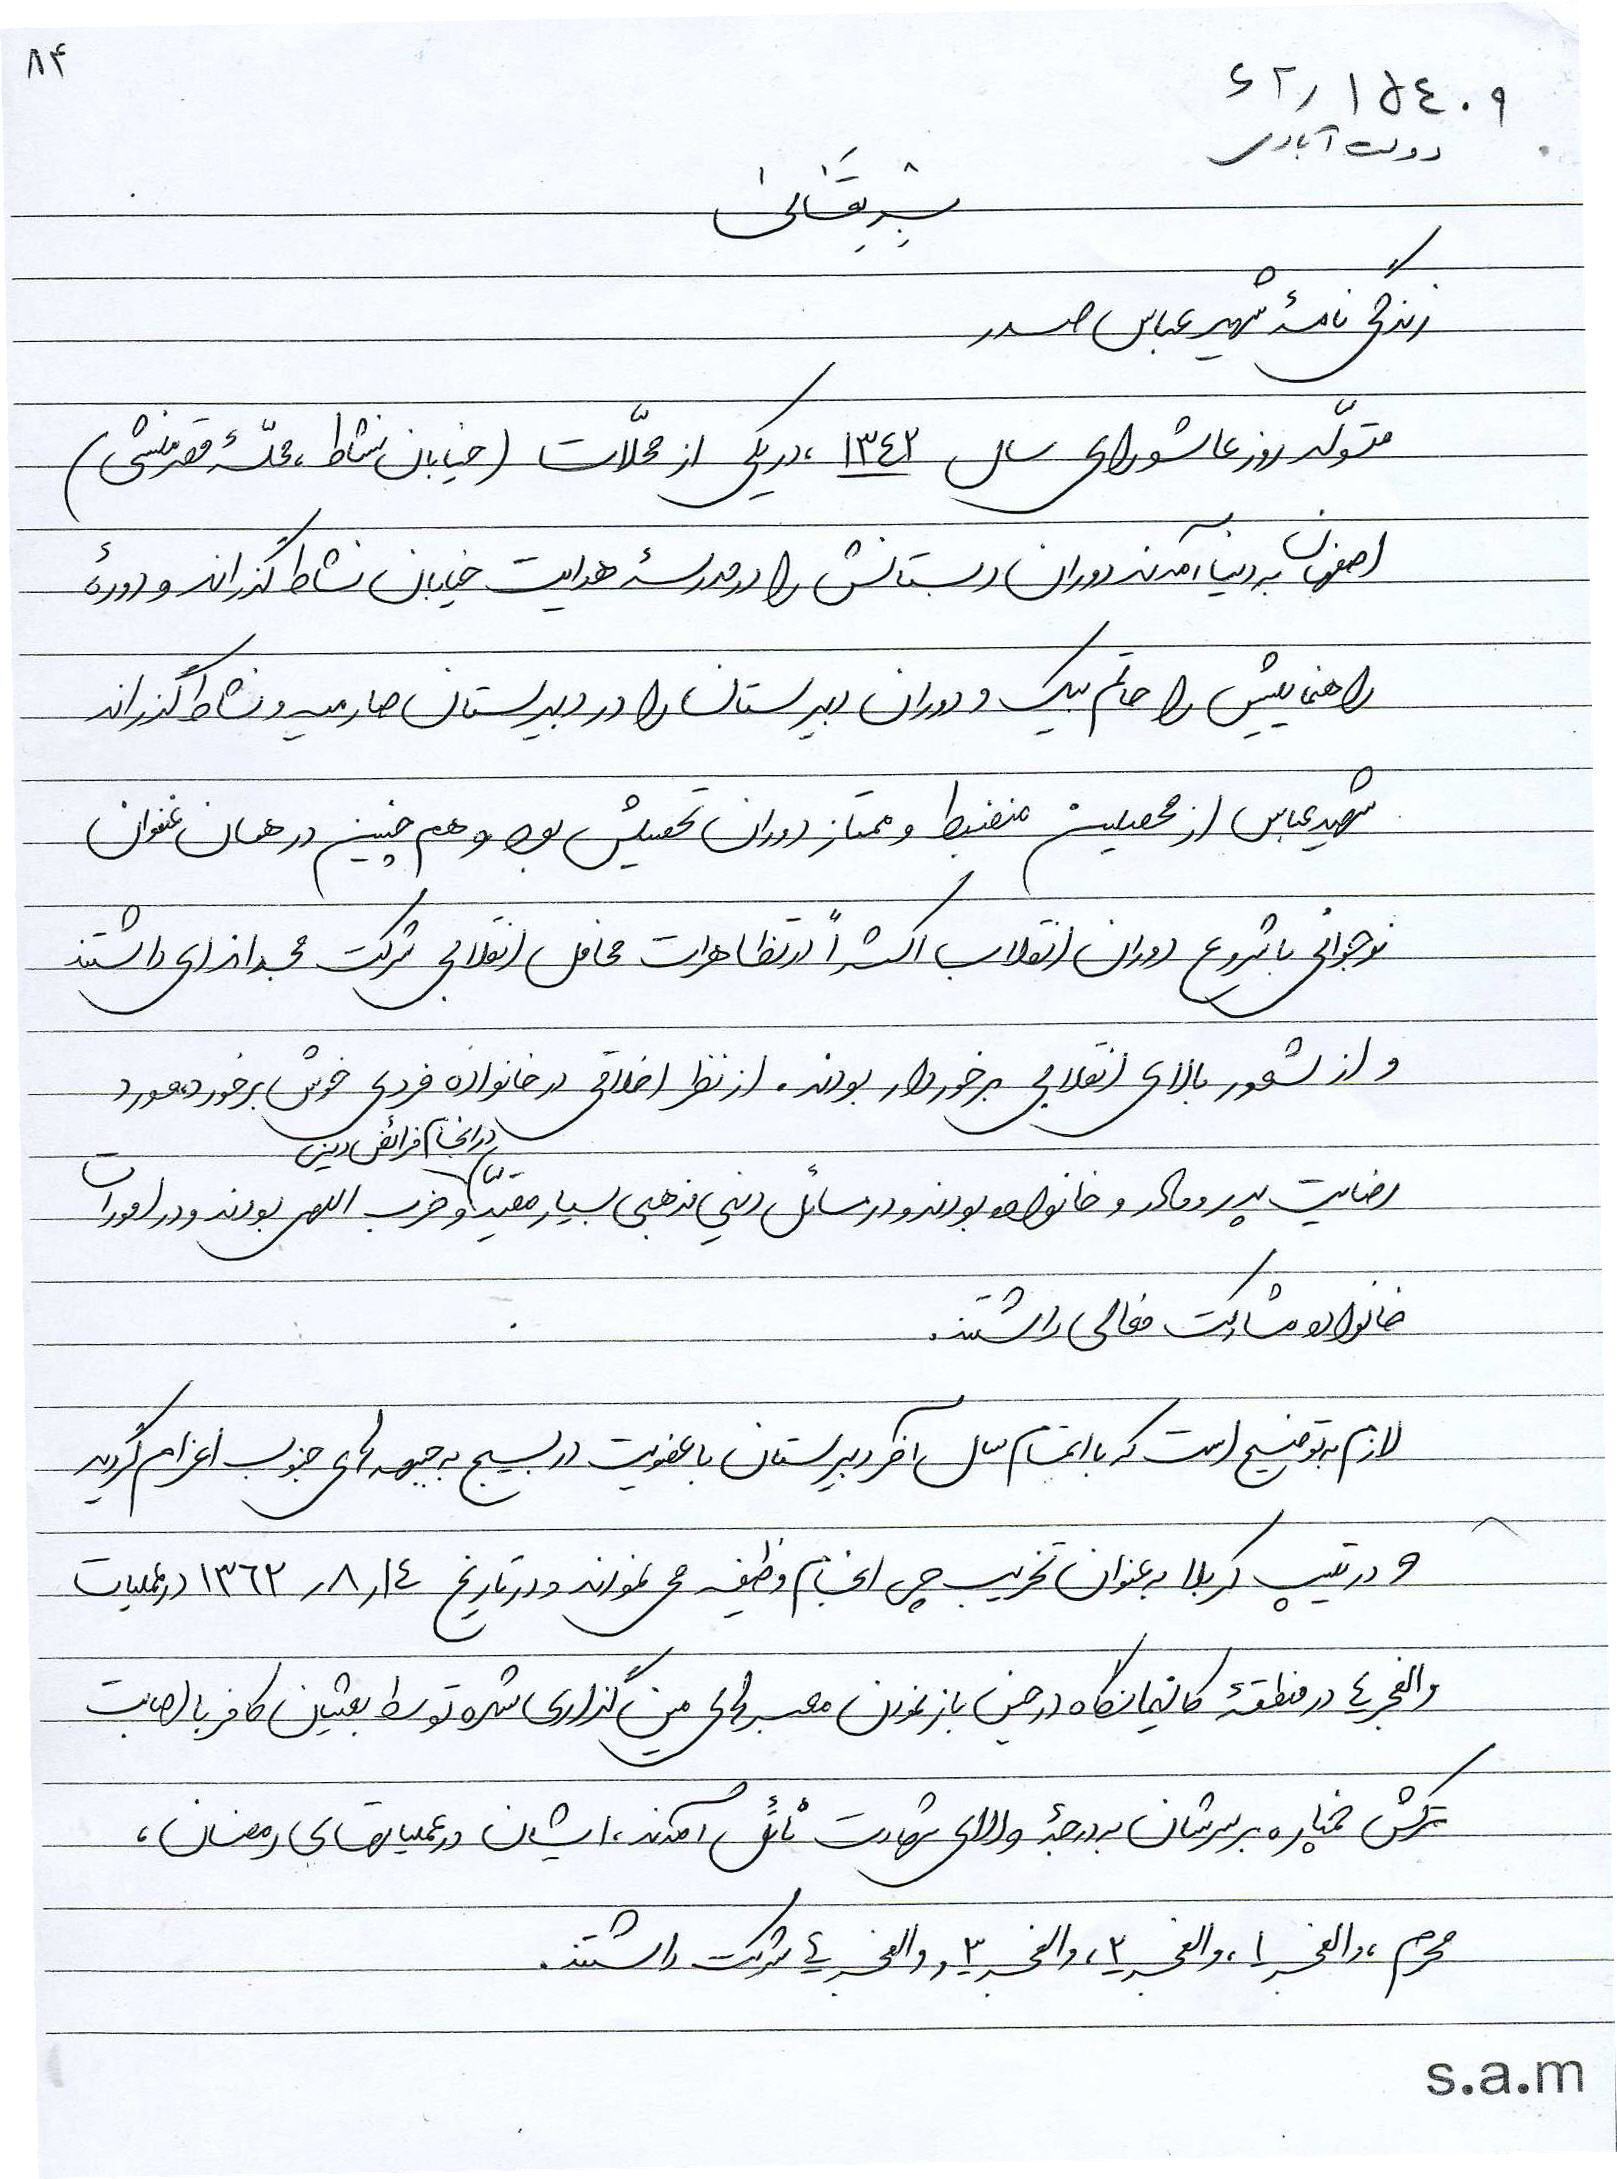 ۸۴
۶۲/۱۵۴۰۹
دولت آبادی
بسمه تعالی
زندگی نامۀ شهید عباس صدر
متولّد روز عاشورای سال ۱۳۴۲، در یکی از محلّات (خیابان نشاط، محلّۀ قصر منشی)
اصفهان به دنیا آمدند دوران دبستانش را در مدرسۀ هدایت خیابان نشاط گذراند و دورۀ
راهنماییش را حاتم بیک و دوران دبیرستان را در دبیرستان صارمیه و نشاط گذراند
شهید عباس از محصلین منضبط و ممتاز دوران تحصیلش بود و هم چنین در همان عنفوان
نوجوانی با شروع دوران انقلاب اکثراً در تظاهرات محافل انقلابی شرکت مجدانه‌ای داشتند
و از شعور بالای انقلابی برخوردار بودند. از نظر اخلاقی در خانواده فردی خوش برخورد، مورد
در انجام فرائض دینی
رضایت پدر و مادر و خانواده بودند و در مسائل دینی مذهبی بسیار مقیّد و حزب اللهی بودند و در امورات
خانواده مشارکت فعالی داشتند.
لازم به توضیح است که با اتمام سال آخر دبیرستان با عضویت در بسیج به جبهه های جنوب اعزام گردید
و در تیپ کربلا به عنوان تخریب چی انجام وظیفه می نمودند و در تاریخ ۱۴ر۸ر۱۳۶۲ در عملیات
والفجر ۴ در منطقۀ کانیمانگاه در حین باز نمودن معبرهای مین گذاری شده توسط بعثیان کافر با اصابت
ترکش خمپاره بر سرشان به درجۀ والای شهادت نائل آمدند، ایشان در عملیاتهای رمضان،
محرم، والفجر ۱، والفجر ۲، والفجر ۳ و والفجر ۴ شرکت داشتند.
s.a.m